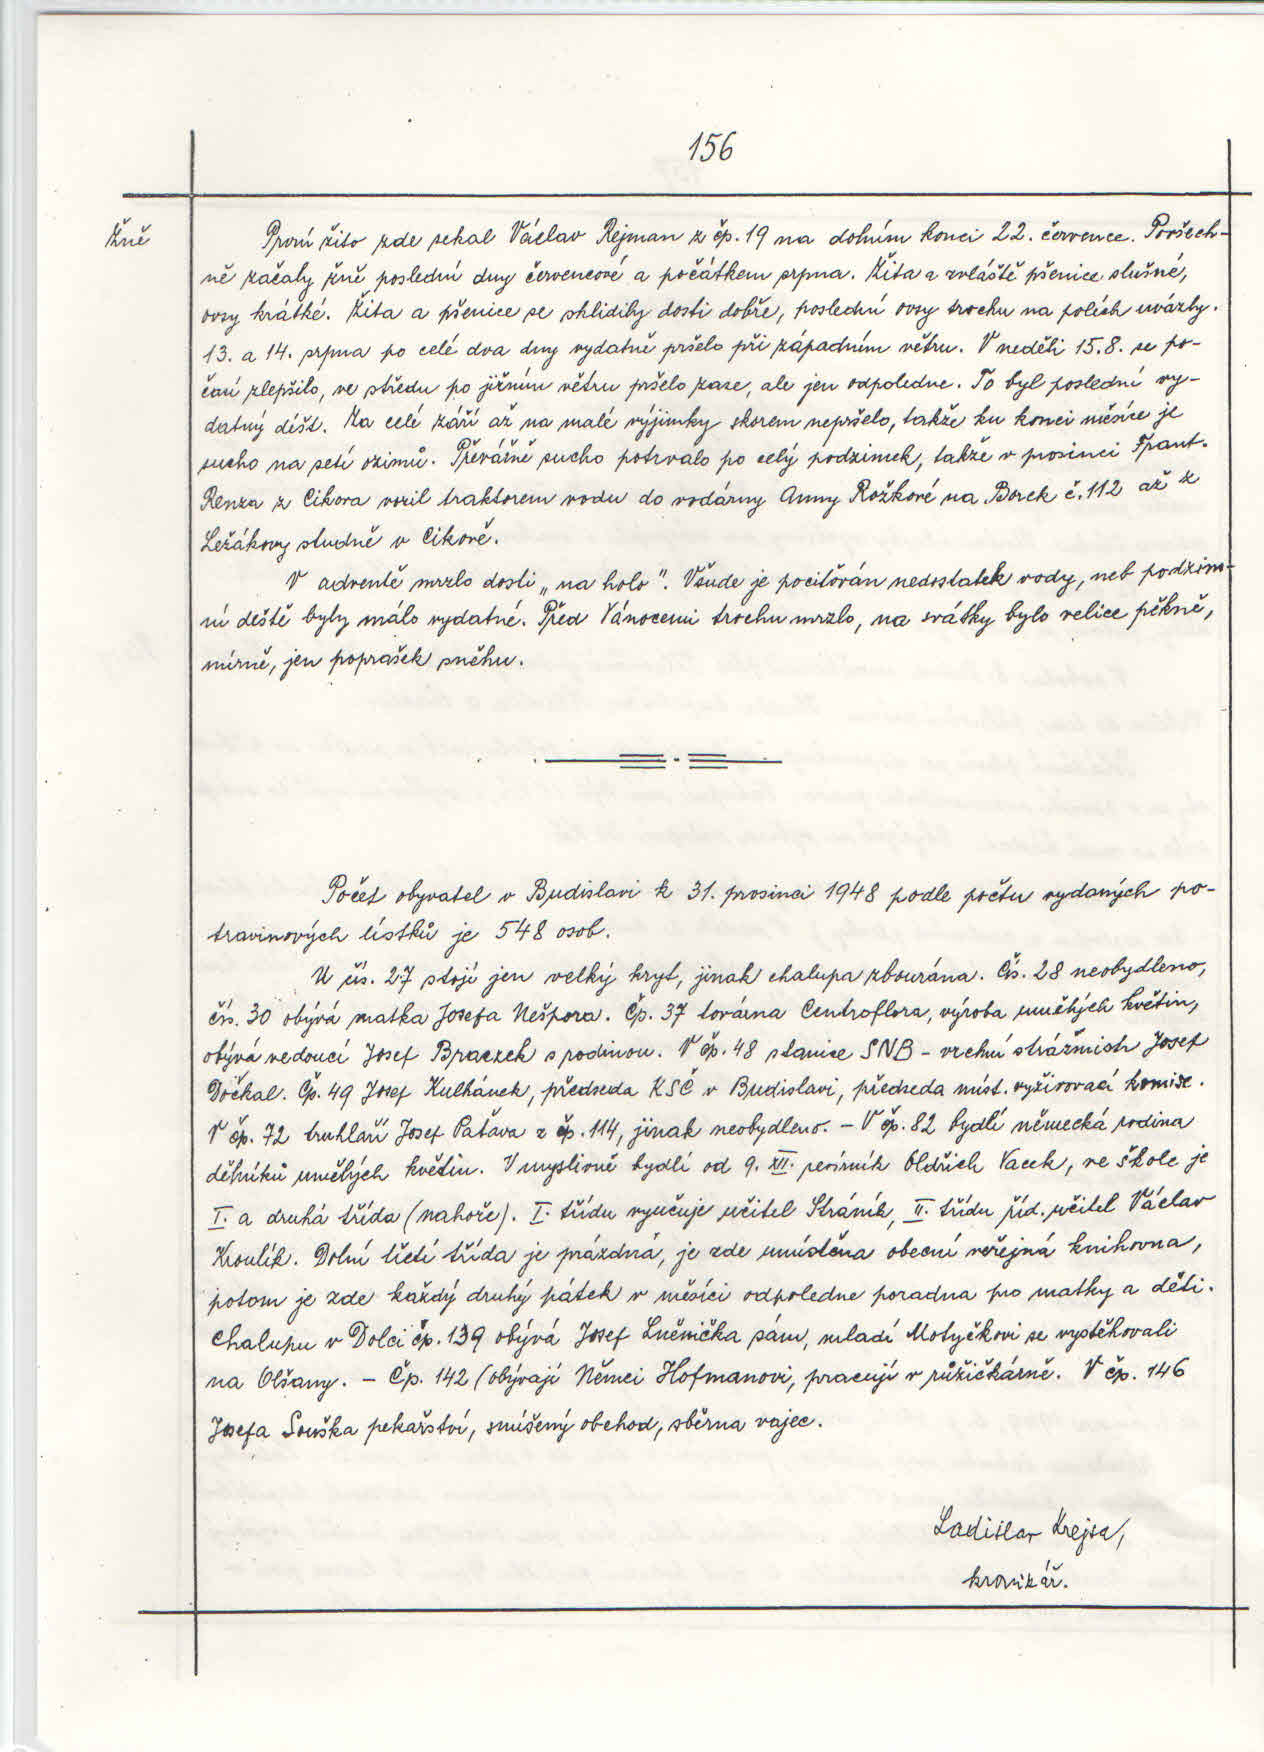 156
Žně
První žito zde sekal Václav Rejman z čp. 19 na dolním konci 22. července. Povšech-
ně začaly žně poslední dny červencové a počátkem srpna. Žita a zvláště pšenice slušné,
ovsy krátké. Žita a pšenice se sklidily dosti dobře, poslední ovsy trochu na polích uvázly.
13. a 14. srpna po celé dva dny vydatně pršelo při západním větru. V neděli 15.8. se po-
časí zlepšilo, ve středu po jižním větru pršelo zase, ale jen odpoledne. To byl poslední vy-
datný déšť. Za celé září až na malé výjimky skorem nepršelo, takže ku konci měsíce je
sucho na setí ozimů. Převážně sucho potrvalo po celý podzimek, takže v prosinci Frant.
Renza z Cikova vozil traktorem vodu do vodárny Anny Rožkové na Borek č. 112 až z
Ležákovy studně v Cikově.
V adventě mrzlo dosti „na holo". Všude je pociťován nedostatek vody, neb podzim-
ní deště byly málo vydatné. Před Vánocemi trochu mrzlo, na svátky bylo velice pěkně,
mírně, jen poprašek sněhu.
Počet obyvatel v Budislavi k 31. prosinci 1948 podle počtu vydaných po-
travinových lístků je 548 osob.
U čís. 27 stojí jen velký kryt, jinak chalupa zbourána. Čís. 28 neobydleno,
čís. 30 obývá matka Josefa Nešpora. Čp. 37 továrna Centroflora, výroba umělých květin,
obývá vedoucí Josef Braczek s rodinou. V čp. 48 stanice SNB - vrchní strážmistr Josef
Dočkal. Čp. 49 Josef Kulhánek, předseda KSČ v Budislavi, předseda míst. vyživovací komise.
V čp. 72 truhlaří Josef Paťava z čp. 114, jinak neobydleno. - V čp. 82 bydlí německá rodina
dělníků umělých květin. V myslivně bydlí od 9. XII. revírník Oldřich Vacek, ve škole je
I. a druhá třída (nahoře). I. třídu vyučuje učitel Stráník, II. třídu říd. učitel Václav
Kroulík. Dolní třetí třída je prázdná, je zde umístěna obecní veřejná knihovna,
potom je zde každý druhý pátek v měsíci odpoledne poradna pro matky a děti.
Chalupu v Dolci čp. 139 obývá Josef Lněnička sám, mladí Motyčkovi se vystěhovali
na Olšany. - Čp. 142 (obývají Němci Hofmanovi, pracují v růžičkárně. V čp. 146
Josefa Souška pekařství, smíšený obchod, sběrna vajec.
Ladislav Krejsa,
kronikář.